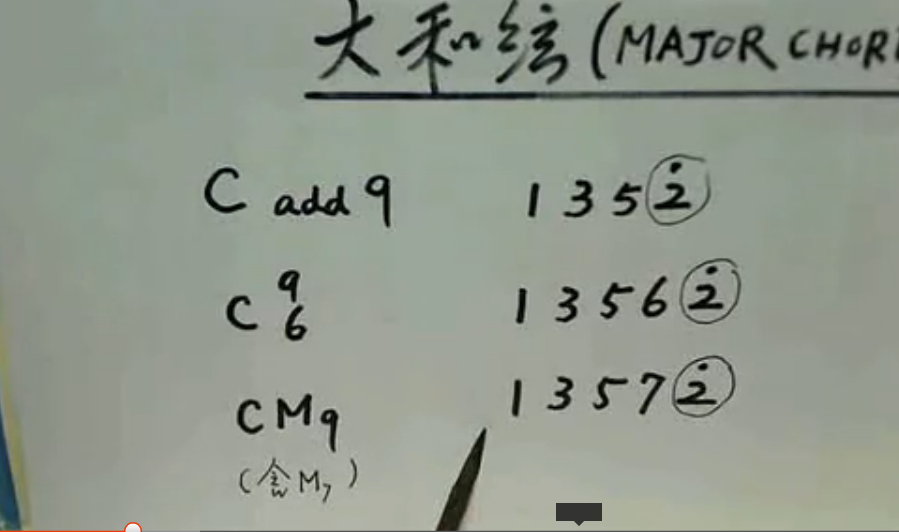 大和弦(MAJOR CHOR
C add 9 1 3 5 2̇
C 9 6 1 3 5 6 2̇
CM9 1 3 5 7 2̇
(含M7)